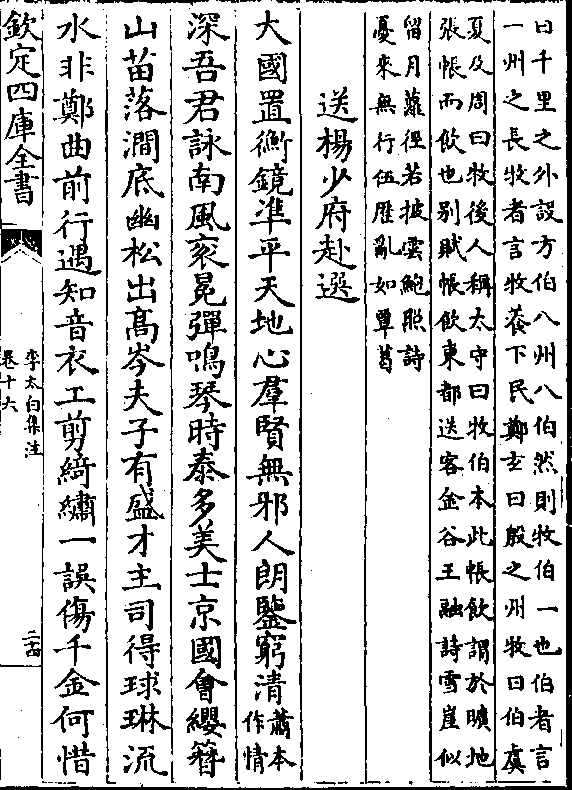 曰千里之外設方伯八州八伯然則牧伯一也伯者言
一州之長牧者言牧養下民鄭玄曰殷之州牧曰伯虞
夏及周曰牧後人稱太守曰牧伯本此帳飲謂於曠地
張帳而飲也别賦帳飲東都送客金谷王融詩雪崖似
留月蘿徑若披雲鮑照詩
憂來無行伍歴亂如覃葛
送楊少府赴選
大國置衡鏡凖平天地心羣賢無邪人朗鑒窮清蕭本
作情
深吾君詠南風衮冕彈鳴琴時泰多美士京國會纓簪
山苗落澗底幽松出髙岑夫子有盛才主司得球琳流
水非鄭曲前行遇知音衣工剪綺繡一誤傷千金何惜
欽定四庫全書
李太白集注
卷十六
二十四